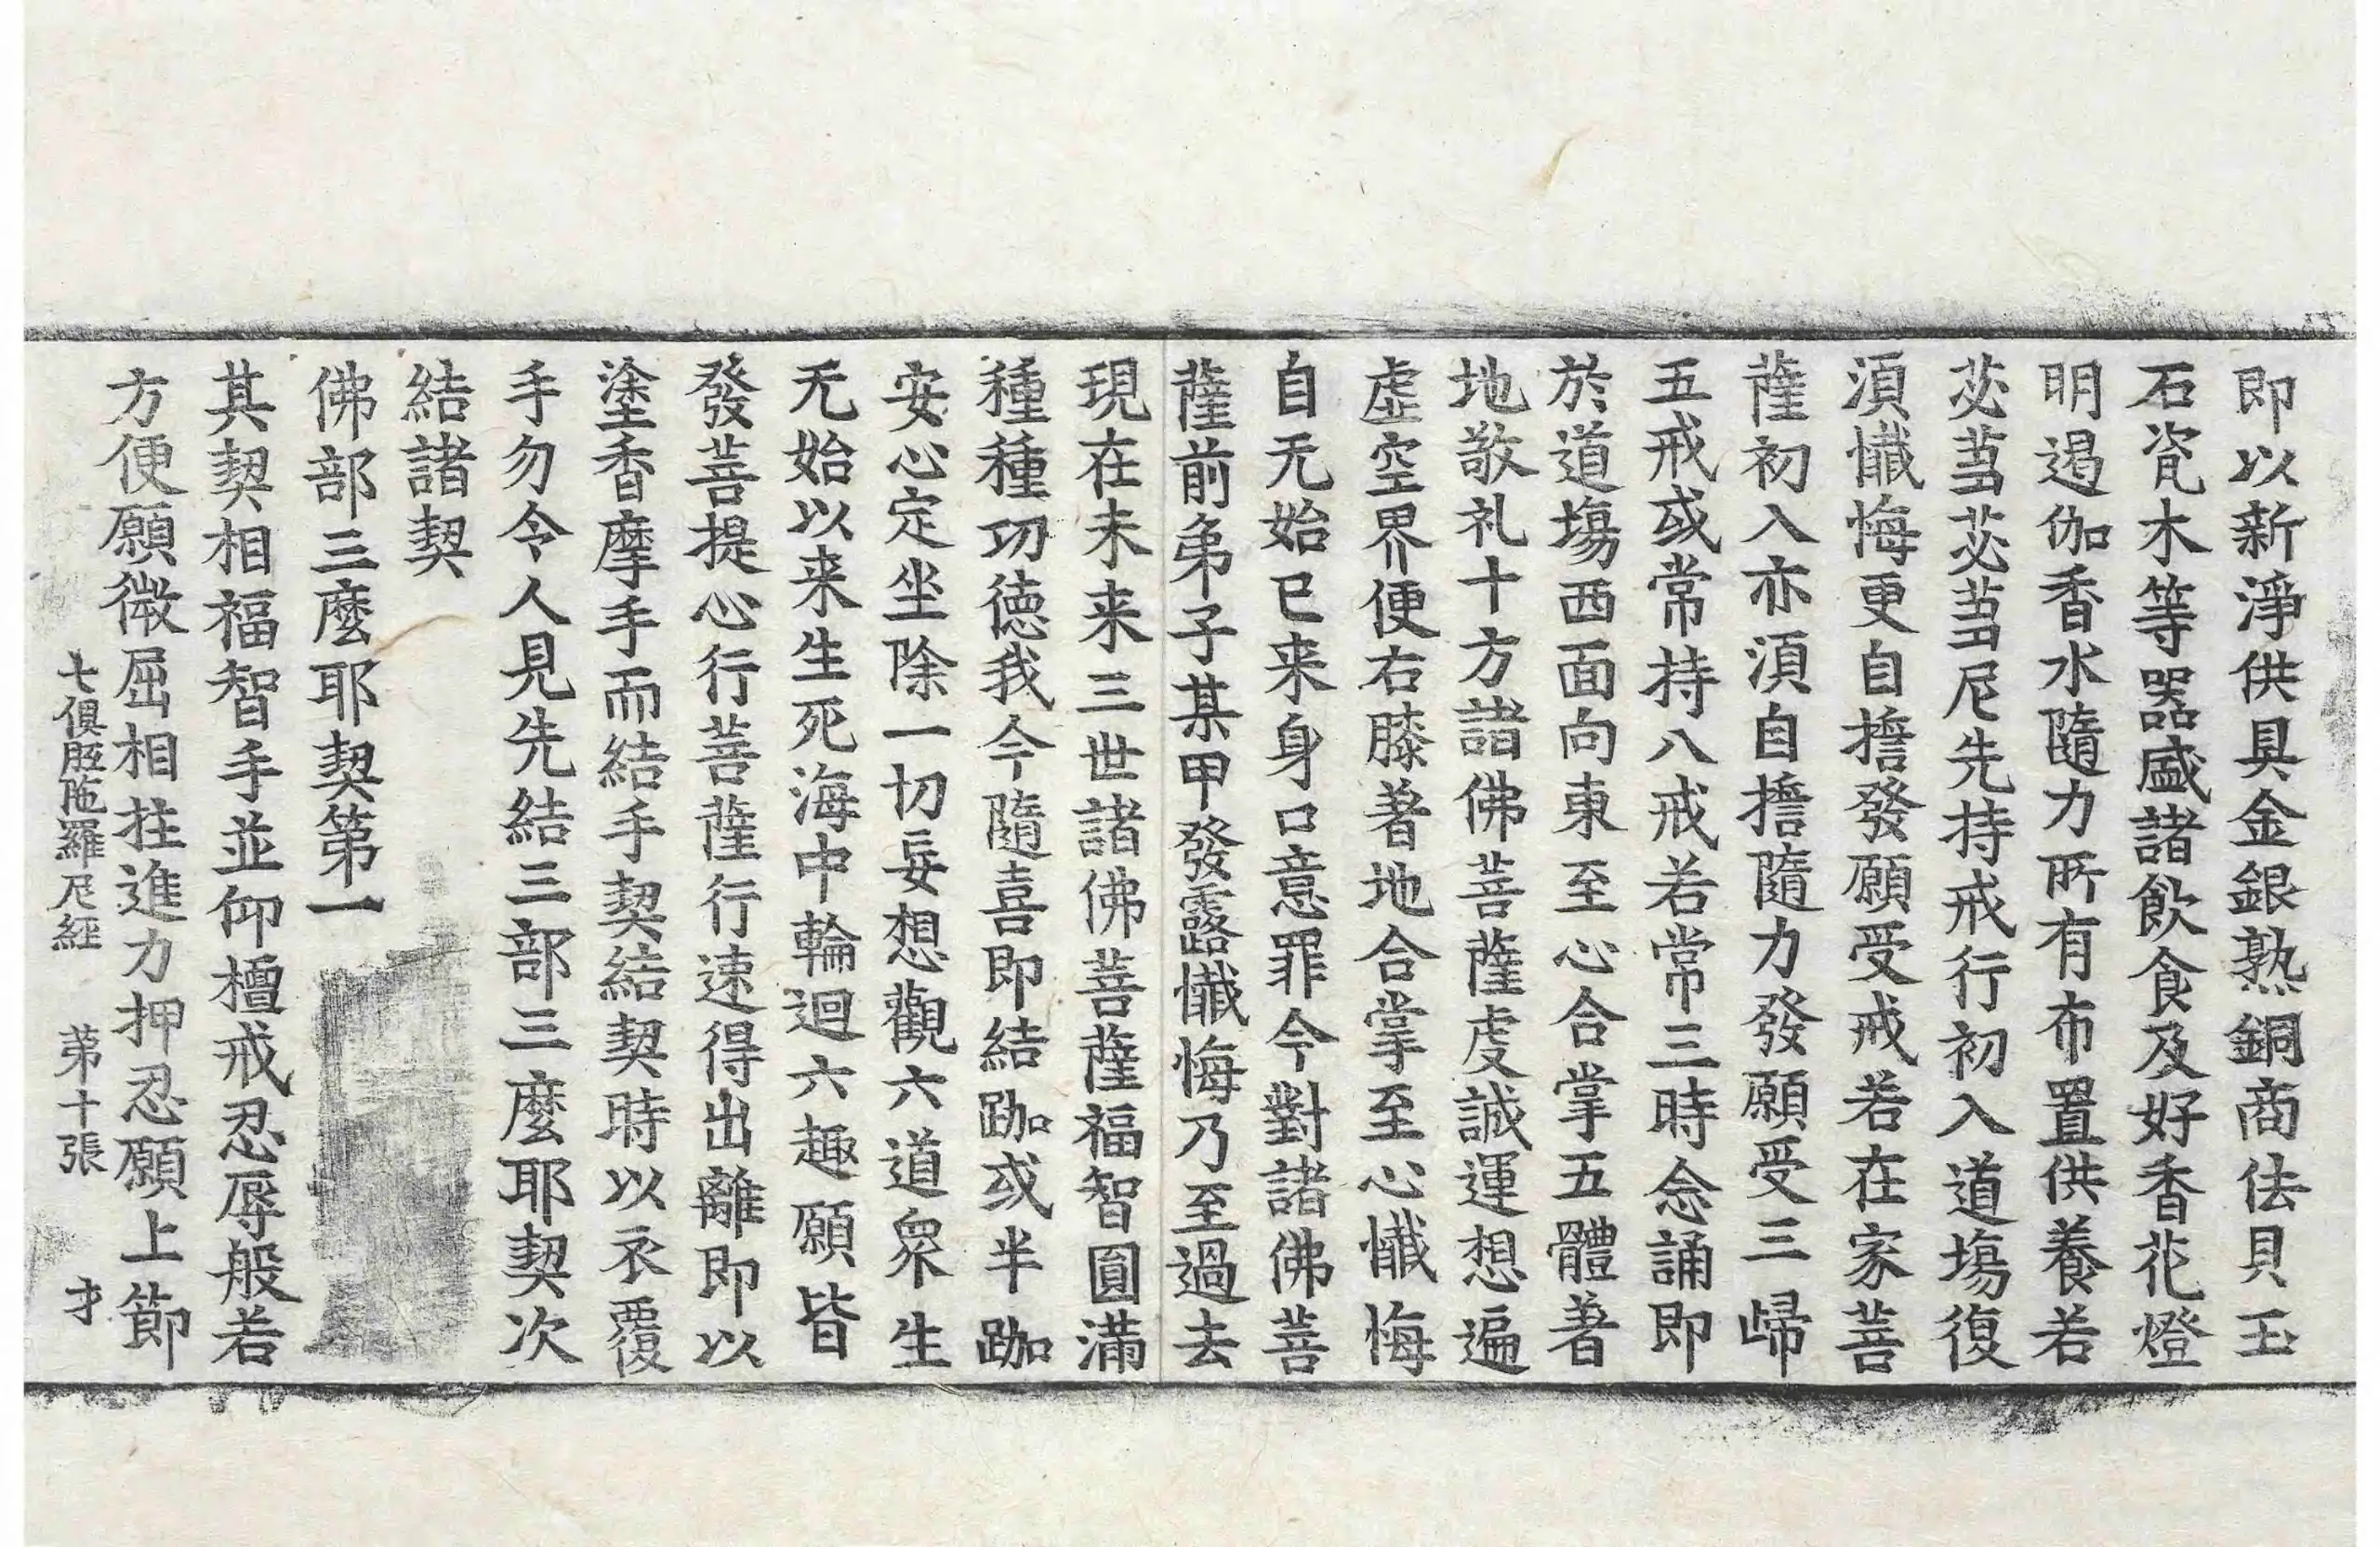 即以新淨供具金銀熟銅商佉貝玉
石瓷木等器盛諸飲食及好香花燈
明遏伽香水隨力所有布置供養若
苾蒭苾蒭尼先持戒行初入道場復
湏懺悔更自擔發願受戒若在家菩
薩初入亦湏自擔隨力發願受三歸
五戒或常持八戒若常三時念誦即
於道場西面向東至心合掌五體著
地敬礼十方諸佛菩薩虔誠運想遍
虛空界便右膝著地合掌至心懺悔
自无始已来身口意罪今對諸佛菩
薩前弟子某甲發露懺悔乃至過去
現在未来三世諸佛菩薩福智圓滿
種種功德我今隨喜即結跏或半跏
安心定坐除一切妄想觀六道衆生
无始以来生死海中輪迴六趣願皆
發菩提心行菩薩行速得出離即以
塗香摩手而結手契結契時以衣覆
手勿令人見先結三部三麼耶契次
結諸契
佛部三麼耶契第一
其契相福智手並仰檀戒忍辱般若
方便願微屈相拄進力押忍願上節
七俱胝陁羅尼經　苐十張　才